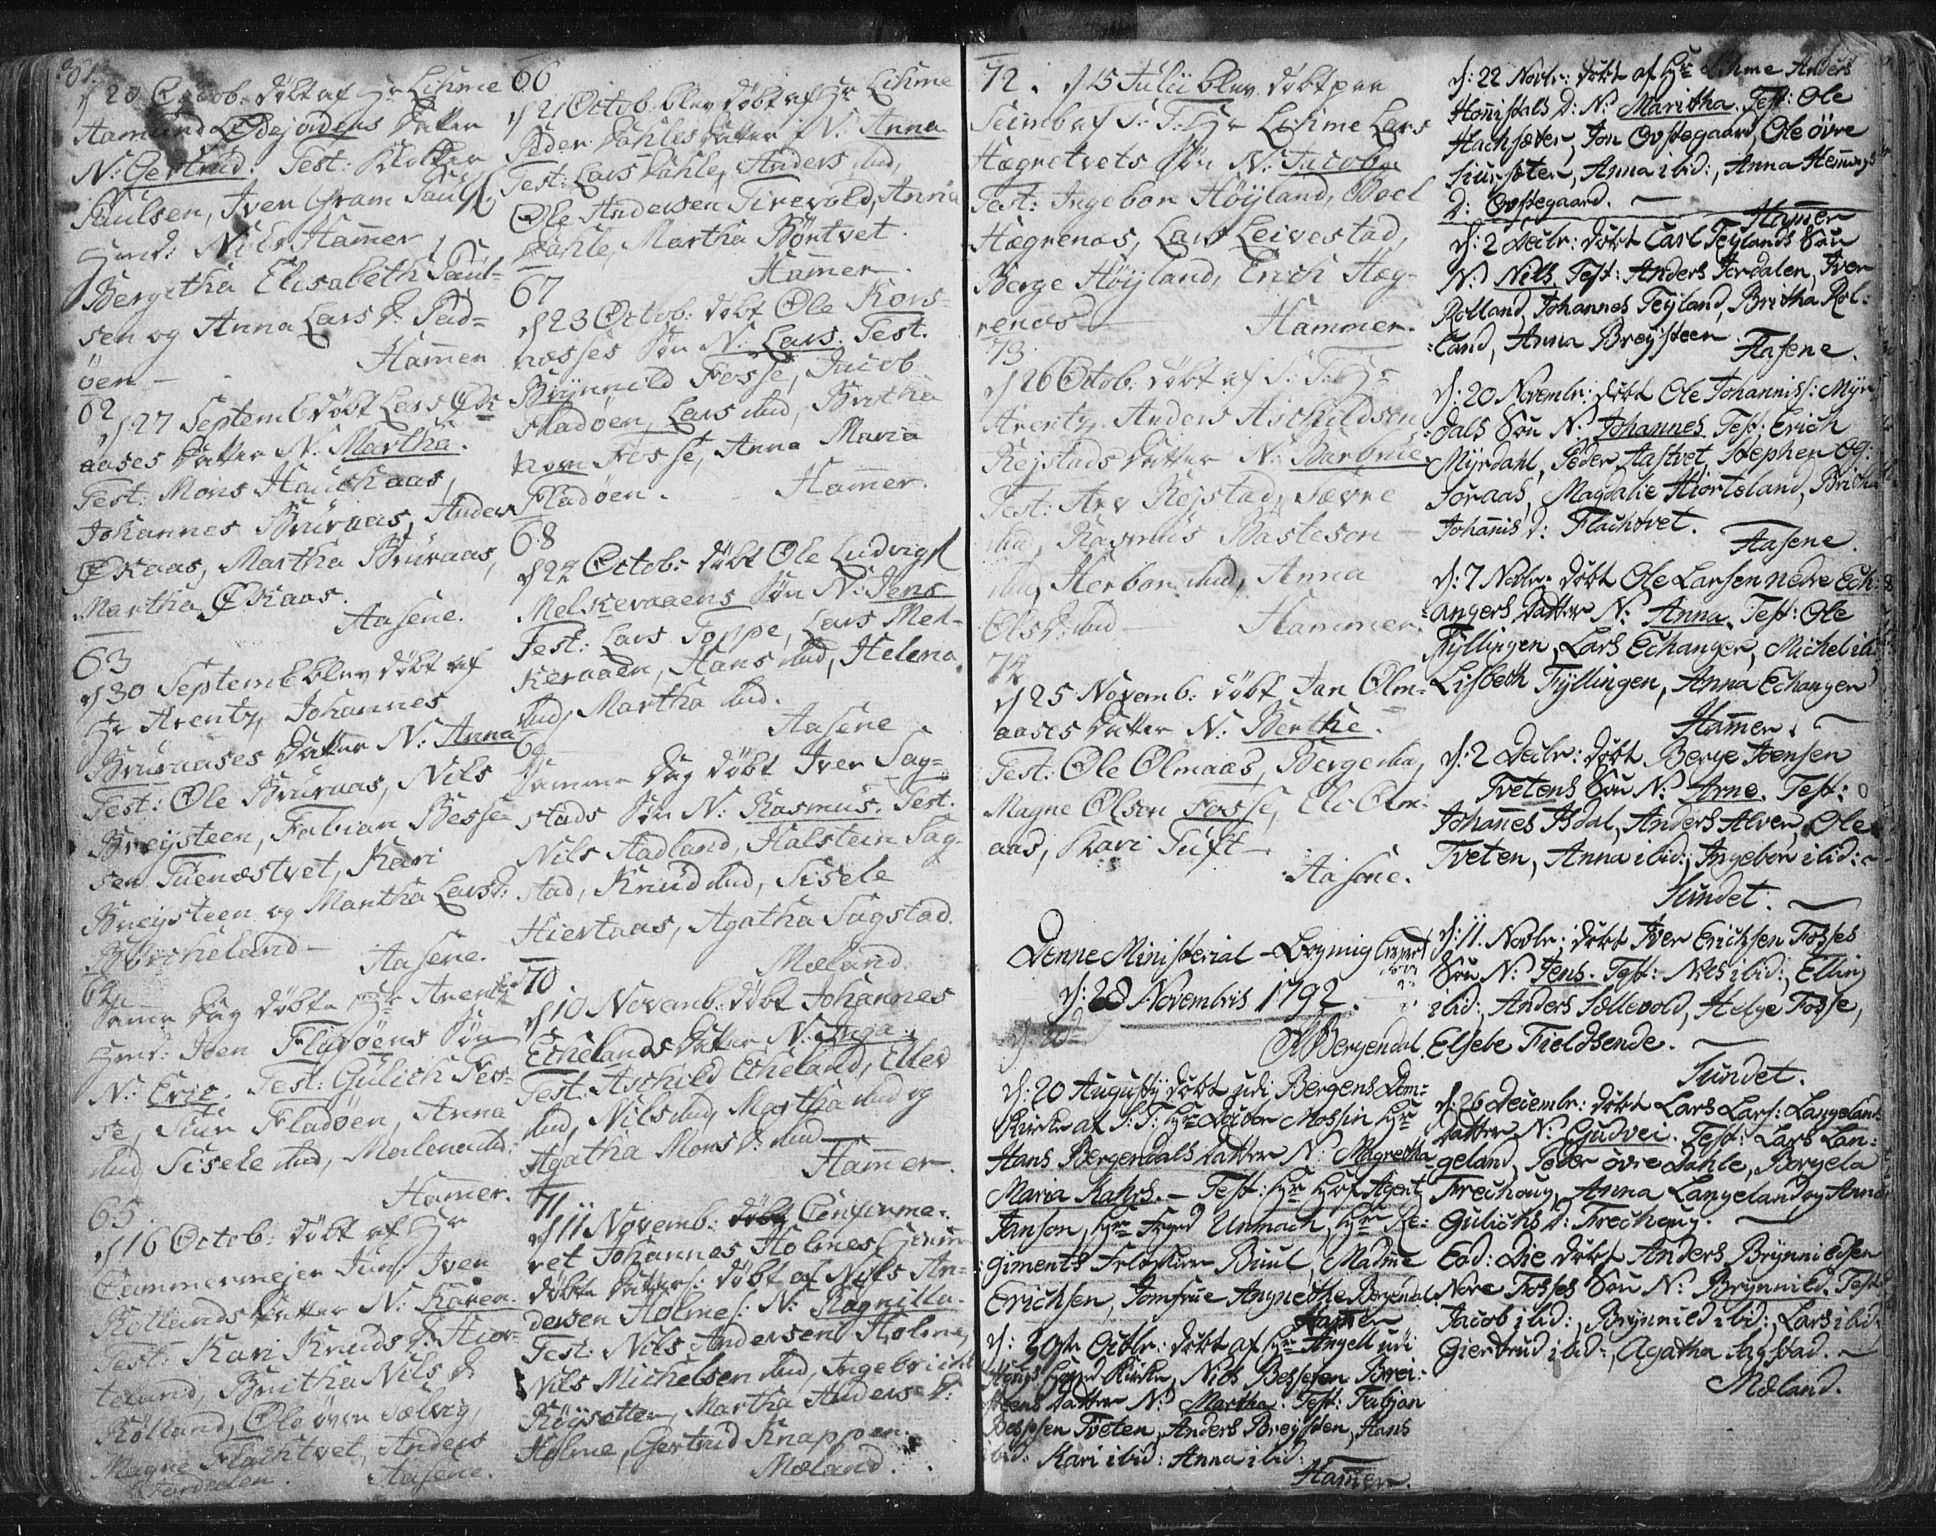 61.
d 20 Octob: döbt af Hr Lihme
Aamund Ødejordens Datter
N: Gertrud. Test: Klokker
Paulsen, Iver Gram Pauls
Nils Hamer,
Bergitha Elisabeth Paul-
sen og Anna Lars D.
öen - Hamer
62
d 27 Septemb döbt Lars Øde
aases Datter N. Martha.
Test: Mons Hauchaas,
Johannes Bruraas, Anders
Ødaas, Martha Bruraas,
Martha Ødaas.
Aasene.
63
d 30 Septemb blev döbt af
Hr Arentz, Johannes
Bruraases Datter N: Anna
Test: Ole Bruraas, Nils
Breysteen, Fabian Besse
sen Tuenæstvet, Kari
Breysteen og Martha Larsd:
Birkeland - Aasene.
64
Samme Dag döbte Hr Arentz
Joen Fladöens Sön
N: Eric. Test: Gulich Fos-
se, Siur Fladöen, Anna
ibid, Sisele ibid, Malena ibd:
Hamer.
65
d 16 Octob: döbt af Hr
Cammermejer Jun: Iver
Röllands Datter N: Karen.
Test: Kari Knuds D. Hior-
teland, Britha Nils D
Rölland, Ole övre Sælvig,
Magne Flachtvet, Anders
Jordalen. Aasene.
66
d 21 Octob blev döbt af Hr Lihme
Peder Dahles Datter N. Anna
Test: Lars Dahle, Anders ibid,
Ole Andersen Tirevold, Anna
Dahle, Martha Börtvet.
Hamer.
67
d 23 Octob: döbt Ole Kors-
næsses Sön N: Lars. Test.
Brynnild Fosse, Jacob
Fladöen, Lars ibid, Britha
Fosse, Anna Maria
Fladöen. Hamer.
68
d 24 Octob: döbt Ole Ludvigs
Melkeraaens Sön N: Jens
Test: Lars Toppe, Lars Mel-
keraaen, Hans ibid, Helena
ibid, Martha ibid.
Aasene
69
Samme Dag döbt Iver Sag-
stads Sön N. Rasmus. Test.
Nils Aadland, Halstein Sag-
stad, Knud ibid, Sisele
Hiertaas, Agatha Sagstad.
Mæland.
70.
d 10 Novemb: döbt Johannes
Echelands Datter N. Inga.
Test: Aschild Echeland, Elled
ibid, Nils ibid, Martha ibid og
Agatha Mons D. ibid
Hamer.
71
d 11 Novemb: döbt Confirme-
ret Johannes Holmes
döbte Datter: döbt af Nils An-
dersen Holme: N. Ragnilla.
Test: Nils Andersen Holme,
Nils Michelsen ibid, Ingebricht
Röysetter, Martha Anders D:
Holme, Gertrud Knappen.
Mæland.
72. d 15 Julii blev döbt paa
Seim af S: T: Hr Lihme Lars
Hægretvets Sön N: Jacob
Test: Ingebor Höyland, Boel
Hægrenæs, Lars Leivestad,
Berge Höyland, Erich Hæg-
renæs Hammer.
73
d 26 Octob: döbt af S: T: Hr
Arentz Anders Aschildsen
Rejstads Datter N: Barbrue
Test: Are Rejstad, Sævne
ibid, Rasmus Bastesen
ibid, Herbor ibid, Anna
Ols D. ibid - Hammer.
74
d 25 Novemb: döbt Jan Olm-
aases Datter N: Berthe.
Test: Ole Olmaas, Berge ibid,
Magne Olsen Fosse, Eli Olm-
aas, Kari Tuft -
Aasene.
Denne Ministerial-Bog mig leveret
d: 20 Novembris 1792.
d: 20
Bergendal.
d: 20 Augusty döbt udi Bergens Dom-
Kirke af S: T: Hr Mossin Hr
Hans Bergendals Datter N: Magretha
Maria Rahrs. - Test: Hr Agent
Janson, Hr Unmach, Hr Re-
giments Feldskier Buul, Madme
Erichsen, Jomfrue Angnethe Bergendal
Hamer
d: 30te Octbr: döbt af Hr Angell udi
Kirke, Nils Bessesen Brei-
steens Datter N: Martha. Test: Fabjan
Bessesen Tveten, Anders Breysteen, Hans
ibid: Kari ibid: Anna ibid:
Hamer.
d: 22 Novbr: döbt af Hr Lihme Anders
Honnisdals D: N: Maritha. Test: Ole
Hachsæter, Jon Ovstegaard, Ole övre
Siursæter, Anna ibid:, Anna Hennings
D: Ovstegaard. - Hamer
d: 2 Decbr: döbt Carl Teylands Sön
N: Nils. Test: Anders Jordalen, Iver
Rolland, Johannes Teyland, Britha Rol-
land, Anna Breysteen.
Aasene.
d: 20 Novembr: döbt Ole Johannis: Myr-
dals Sön N: Johannes Test: Erich
Myrdahl, Peder Aastvet, Stephen og:
Soraas, Magdalie Hiorteland, Britha
Johanis D: Flachtvet.
Aasene.
d: 7 Novbr: döbt Ole Larsen nedre Ech-
angers Datter N: Anna. Test: Ole
Fyllingen, Lars Echanger, Michel ibid
Lisbeth Fyllingen, Anna Echanger
Hamer. -
d: 2 Decbr: döbt Berge Joensen
Tvetens Sön N: Arne. Test:
Johannes Isdal, Anders Alver, Ole
Tveten, Anna ibid:, Ingebor ibid: -
Sundet.
d: 11. Novbr: döbt Iver Erichsen Fosses
Sön N: Jens. Test: Nils ibid:, Elling
ibid:, Anders Sollevold, Helge Fosse,
Elsebe Fieldsende. -
Sundet.
d: 26 Decembr: döbt Lars Lars: Langelands
Datter N: Gudvei. Test: Lars Lan-
geland, Peder övre Dahle, Borgela
Frechaug, Anna Langeland og Anna
Gulichs D: Frechaug. -
Eod: Die döbt Anders Brynnildsen
Nore Fosses Sön N: Brynnild. Test:
Jacob ibid:, Brynnild ibid:, Lars ibid:
Giertrud ibid:, Agatha Sagstad. -
Mæland.